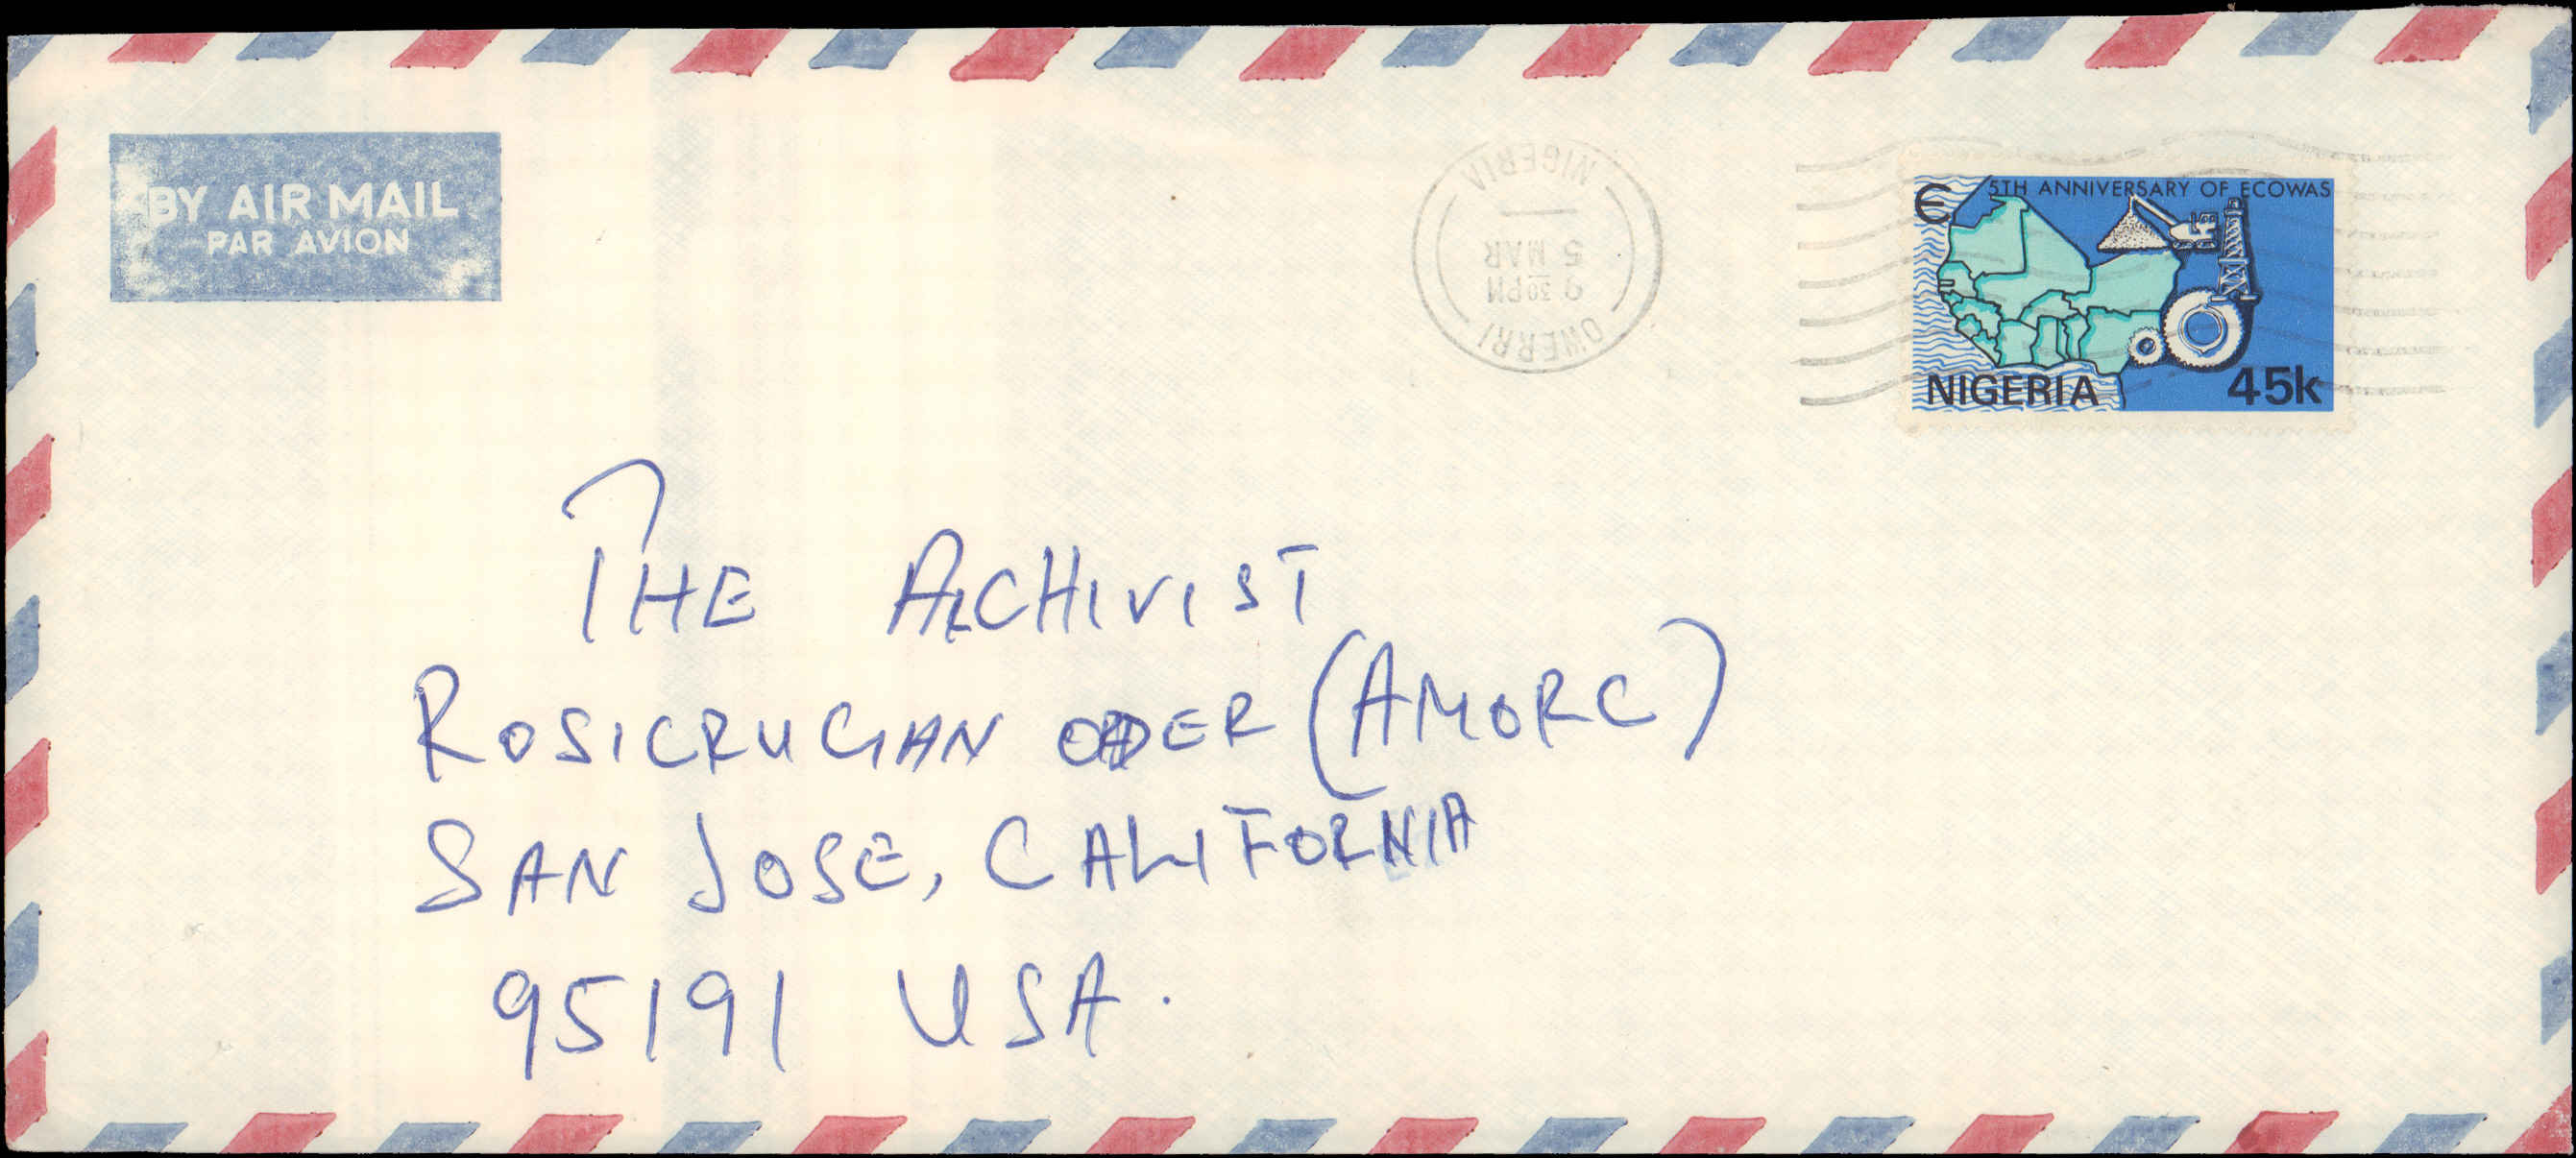 BY AIR MAIL
PAR AVION
OWERRI
9 30PM
5 MAR
NIGERIA
5TH ANNIVERSARY OF ECOWAS
NIGERIA 45k
THE ARCHIVIST
ROSICRUCIAN ORDER (AMORC)
SAN JOSE, CALIFORNIA
95191 USA.